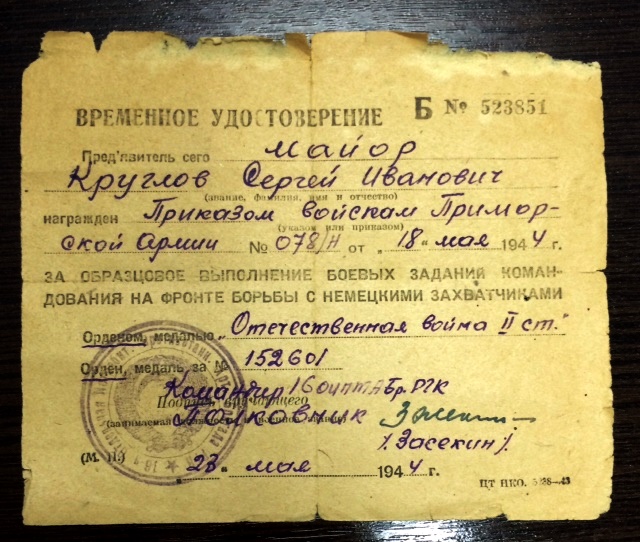 ВРЕМЕННОЕ УДОСТОВЕРЕНИЕ Б № 523851
Пред'явитель сего майор
Круглов Сергей Иванович
(звание, фамилия, имя и отчество)
награжден Приказом войскам Примор-
(указом или приказом)
ской Армии № 078/н от "18" мая 1944 г.
ЗА ОБРАЗЦОВОЕ ВЫПОЛНЕНИЕ БОЕВЫХ ЗАДАНИЙ КОМАН-
ДОВАНИЯ НА ФРОНТЕ БОРЬБЫ С НЕМЕЦКИМИ ЗАХВАТЧИКАМИ
Орденом, медалью „Отечественная война II ст."
Орден, медаль за № 152601
Командир 16 оиптАБр РГК
Подпись
Полковник
(занимаемая
/Засекин/.
(М. П.) „23" мая 1944 г.
ЦТ НКО.